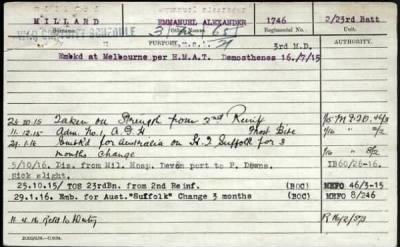 MILLARD EMMANUEL ALEXANDER 1746 2/23rd Batt
Surname Regimental No. Unit.
PURPORT. 3rd M.D. AUTHORITY.
Embkd at Melbourne per H.M.A.T. Demosthenes 16/7/15
26.10.15 Taken on Strength from 2nd Reinf
11.12.15 Adm. No.1. A.G.H Frost Bite
29.1.16 Embk'd for Australia on H.T Suffolk for 3
months Change
5/10/16. Dis. from Mil. Hosp. Devon port to P. Downs. IB60/26-16.
Sick slight.
25.10.15/ TOS 23rdBn. from 2nd Reinf. (BOC) MEFO 46/3-15
29.1.16. Emb. for Aust."Suffolk" Change 3 months (BOC) MEFO 8/246
11.4.16 Retd to Duty